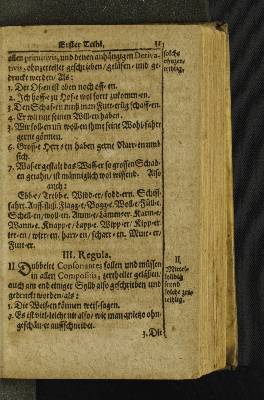 Erster Theil. 51
allen primitivis, und denen anhängigen Deriva-
tivis, ohnzertheilet geschrieben/ geläsen/ und ge-
druckt werden/ Als:
1. Der Of-en ist oben noch off-en.
2. Ich hoff-e zu Hof-e wol fort zukommen.
3. Den Schaf-en muß man Futt-erüg schaff-en.
4. Er wil nur seinen Will-en haben.
5. Wir soll-en ihm ihre Wohlfahrt
gerne gönnen.
6. Gross-e Herr-en haben gerne Narr-en umb
sich.
7. Was-er gestalt das Wass-er so grossen Schad-
en gethan/ ist männiglich wol wissend. Also
auch:
Ebb-e/ Trebb-e. Widd-er/ fodd-ern. Schiff-
fahrt. Flagg-e/ Bogg-e. Woll-e/ Füll-e.
Schell-en/ woll-en. Kann-e/
Wann-e. Knapp-e/ Lapp-e. Wipp-er/ Kipp-er
irr-en/ harr-en/ scharr-en. Mutt-er/
Futt-er.
III. Regula.
II Dubbelte Consonantes sollen und müssen
in allen Compositis, zertheilet geläsen/
auch am end einiger Syllb also geschrieben und
gedruckt worden/ als:
1. Die Weiß-en können weis-sagen.
2. Es ist viel-leicht nit also/ wie man
auffschneidet.
3. Die
solche
ohnzer-
theilig.
II.
Mittel-
syllbig
seynd
solche zer-
theilig.